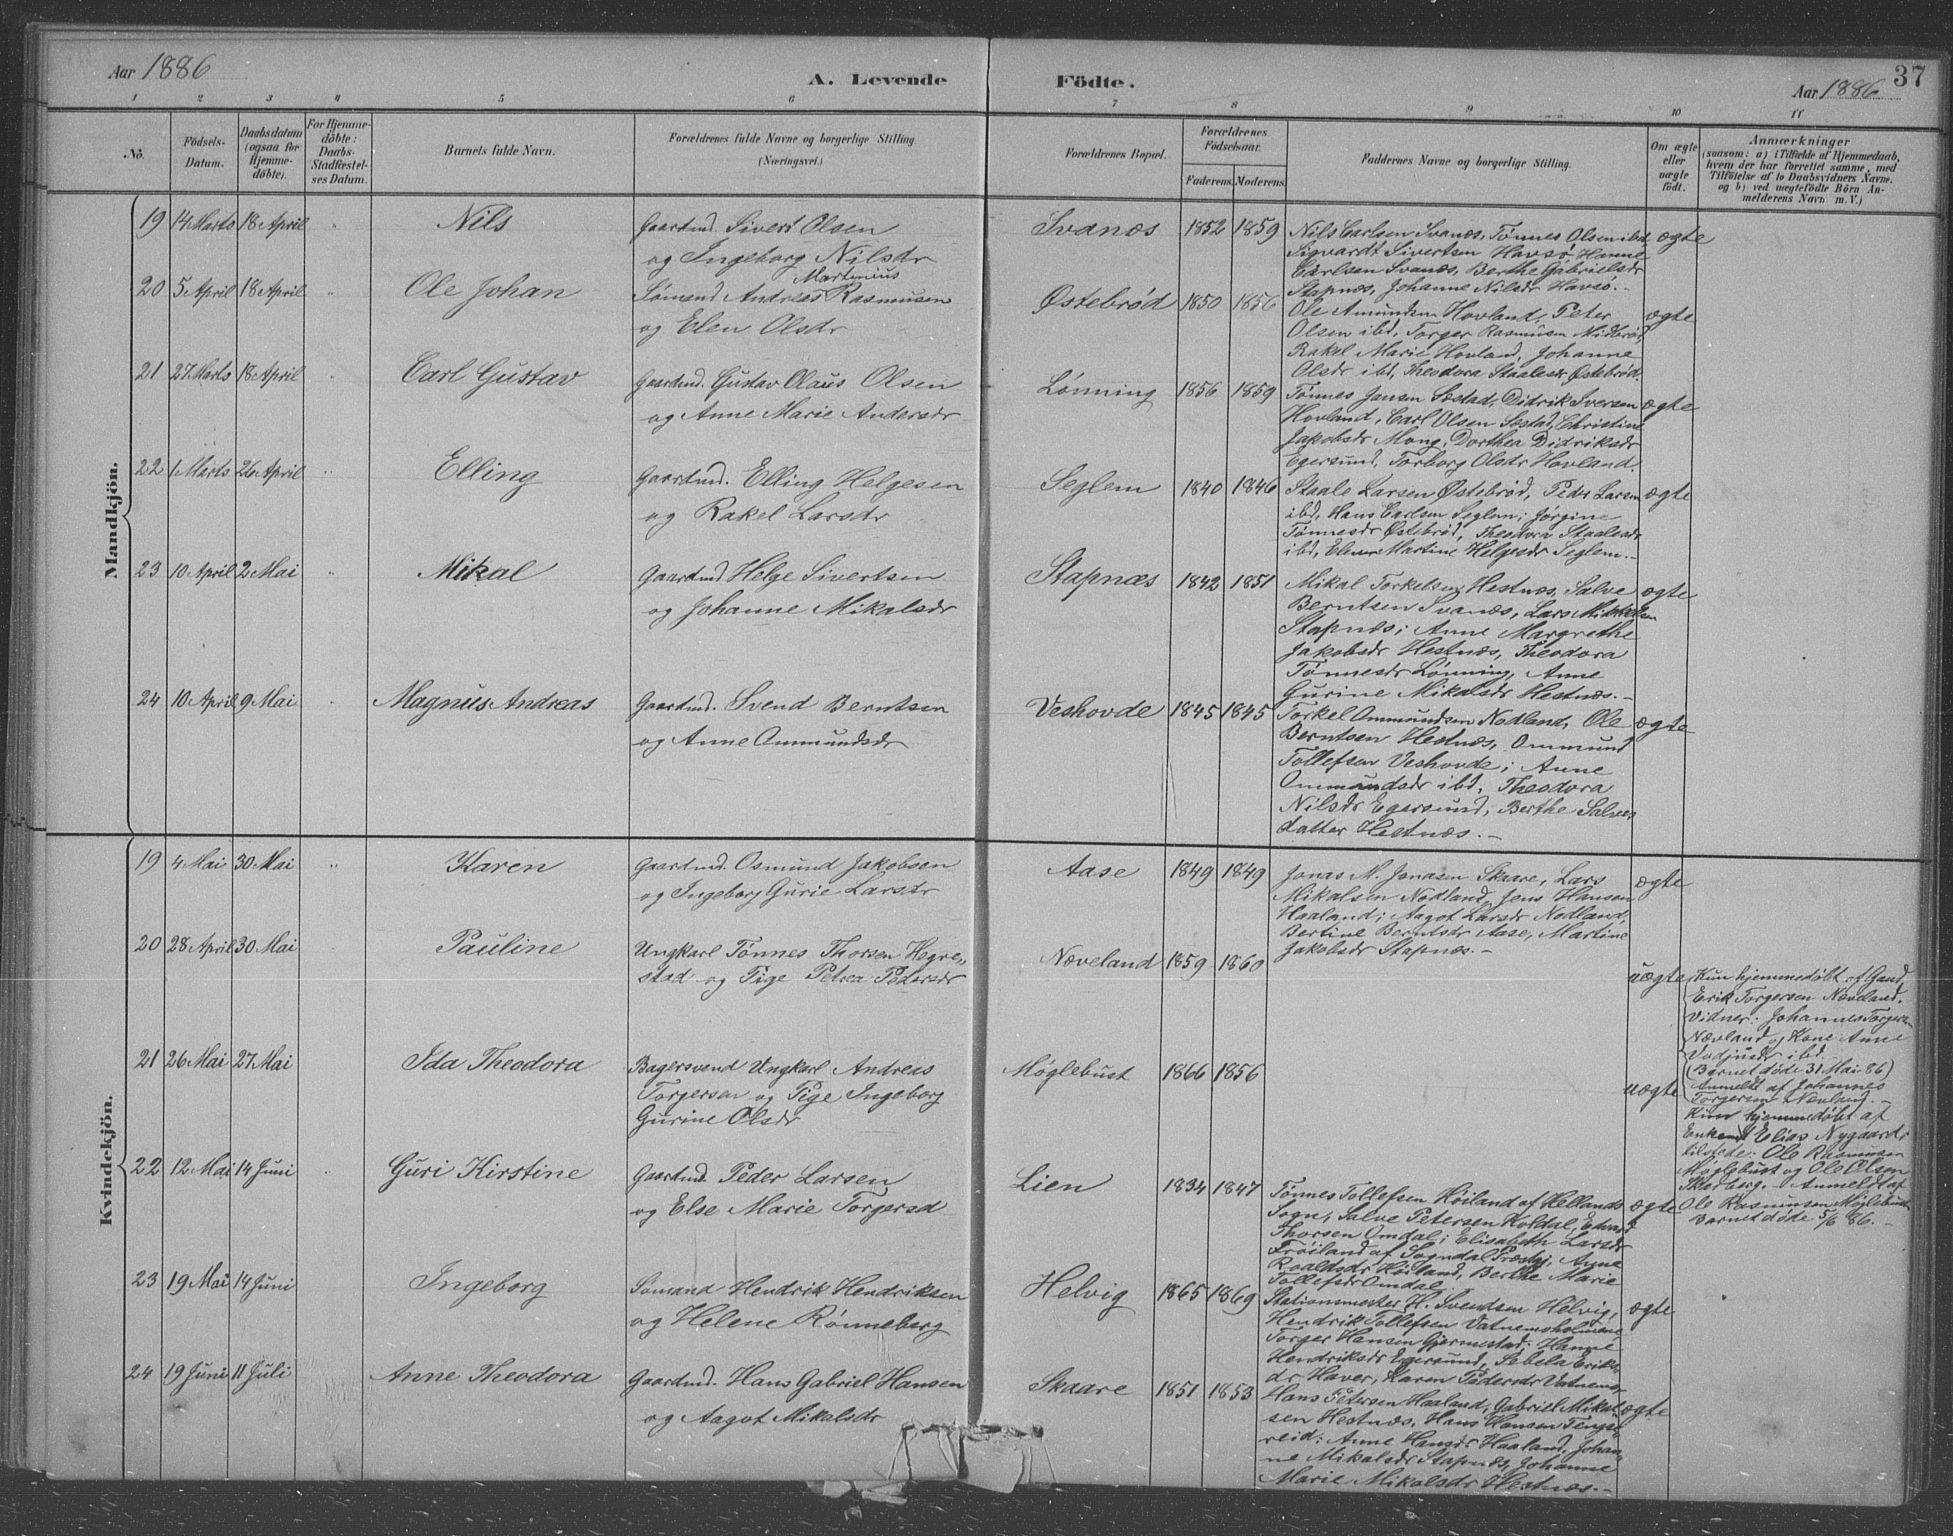 Aar 1886
A. Levende Födte.
Aar 1886
37
1 2 3 4 5 6 7 8 9 10 11
No.
Födsels-Datum.
Daabsdatum (ogsaa for Hjemme-döbte).
For Hjemme-döbte: Daabs-Stadfæstel-ses Datum.
Barnets fulde Navn.
Forældrenes fulde Navne og borgerlige Stilling (Næringsvei.)
Forældrenes Bopæl.
Forældrenes Födselsaar.
Faderens. Moderens.
Faddernes Navne og borgerlige Stilling.
Om ægte eller uægte födt.
Anmærkninger
(saasom: a) i Tilfælde af Hjemmedaab, hvem der har forrettet samme, med Tilföielse af to Daabsvidners Navne, og b) ved uægtefödte Börn An-melderens Navn m. V.)
Mandkjön.
19 14 Marts 18 April " Nils
Gaardmd. Sivert Olsen
og Ingeborg Nilsdr
Svanæs 1852 1859
Nils Carlsen Svanæs, Tønnes Olsen ibd,
Sigvardt Sivertsen Havsø, Hanne
Carlsen Svanæs, Berthe Gabrielsdr
Stapnæs, Johanne Nilsdr Havsø.-
ægte
20 5 April 18 April " Ole Johan
Martinius
Sømand Andreas Rasmusen
og Elen Olsdr
Østebrød 1850 1856
Ole Amundsen Hovland, Peter
Olsen ibd, Torger Rasmusen Nidbrød,
Rakel Marie Hovland, Johanne
Olsdr ibd, Theodora Staalesdr Østebrød.
ægte
21 27 Marts 18 April " Carl Gustav
Gaardmd. Gustav Olaus Olsen
og Anne Marie Andersdr
Lønning 1856 1859
Tønnes Jansen Sæstad, Didrik Iversen
Hovland, Carl Olsen Sæstad, Christine
Jakobsdr Mong, Dorthea Didriksdr
Egersund, Torborg Olsdr Hovland.
ægte
22 1 Marts 26 April " Elling
Gaardmd. Elling Helgesen
og Rakel Larsdr
Seglem 1840 1846
Staale Larsen Østebrød, Peder Larsen
ibd, Hans Carlsen Seglem; Jørgine
Tønnesdr Østebrød, Theodora Staalesdr
ibd, Elen Martine Helgesdr Seglem.-
ægte
23 10 April 2 Mai " Mikal
Gaardmd Helge Sivertsen
og Johanne Mikalsdr
Stapnæs 1842 1851
Mikal Torkelsen Hestnæs, Salve
Berntsen Svanæs, Lars Mikkelsen
Stapnæs; Anne Margrethe
Jakobsdr Hestnæs, Theodora
Tønnesdr Lønning, Anne
Gurine Mikalsdr Hestnæs.-
ægte
24 10 April 9 Mai " Magnus Andreas
Gaardmd. Svend Berntsen
og Anne Ommundsdr
Veshovde 1845 1845
Torkel Ommundsen Nodland, Ole
Berntsen Hestnæs, Ommund
Tollefsen Veshovde; Anne
Ommundsdr ibd, Theodora
Nilsdr Egersund, Berthe Salves
datter Hestnæs.-
ægte
Kvindekjön.
19 4 Mai 30 Mai " Karen
Gaardmd. Osmund Jakobsen
og Ingeborg Gurie Larsdr
Aase 1849 1849
Jonas M. Jonasen Skaare, Lars
Mikalsen Nodland, Jens Hansen
Haaland; Aagot Larsdr Nodland,
Bertine Berntsdr Aase, Martine
Jakobsdr Stapnæs.-
ægte
20 28 April 30 Mai Pauline
Ungkarl Tønnes Thorsen Hegre-
stad og Pige Petrea Pedersdr
Næveland 1859 1860
uægte
Kun hjemmedøbt af Gaard.
Erik Torgersen Næveland.
Vidner: Johannes Torgersen
Nævland og Kone Anne
ibd.
(Barnet døde 31 Mai 86)
Anmeldt af Johannes
Torgersen Nævland.-
21 26 Mai 27 Mai Ida Theodora
Bagersvend Ungkarl Andreas
Torgersen og Pige Ingeborg
Gurine Olsdr
Møglebust 1866 1856
uægte
Kun hjemmedøbt af
Enkemd Elias Nygaard,
tilstede: Ole Rasmusen
Møglebust og Ole Olsen
Skadberg.- Anmeldt af
Ole Rasmusen Møglebust
Barnet døde 5/6 86.-
22 12 Mai 14 Juni " Guri Kirstine
Gaardmd. Peder Larsen
og Else Marie Torgersd
Lien 1834 1847
Tønnes Tollefsen Høiland af Hellands
Sogn, Salve Petersen Koldal, Edvard
Thorsen Omdal; Elisabeth Larsdr
Frøiland af Sogndal Præstgj. Anne
Roaldsdr Høiland, Berthe Marie
Tollefsdr Omdal
ægte
23 19 Mai 14 Juni Ingeborg
Sømand Hendrik Hendriksen
og Helene Rønneberg
Helvig 1865 1869
Stationsmester H. Svendsen Helvig,
Hendrik Tollefsen Vatnemsholmene
Torger Hansen Gjermestad; Hanne
Hendriksdr Egersund, Sebela Eriks
dr Haver, Karen Pedersdr Vatnem
ægte
24 19 Juni 11 Juli Anne Theodora
Gaardmd. Hans Gabriel Hansen
og Aagot Mikalsdr
Skaare 1851 1853
Hans Petersen Haaland, Gabriel Mikal
sen Hestnæs, Hans Hansen Tengs
reid; Anne Hansdr Haaland, Johan
ne Mikalsdr Stapnæs, Johanne
Marie Mikalsdr Hestnæs.-
ægte